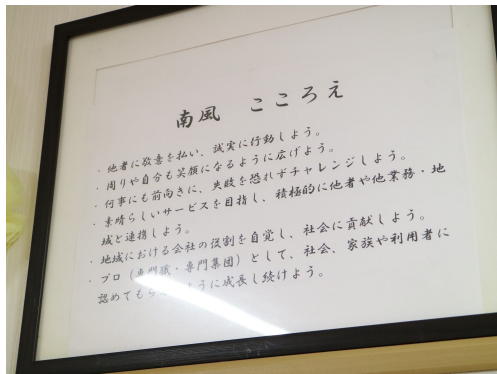 南風 こころえ
・他者に敬意を払い、誠実に行動しよう。
・周りや自分も笑顔になるように広げよう。
・何事にも前向きに、失敗を恐れずチャレンジしよう。
・素晴らしいサービスを目指し、積極的に他者や他業務・地
域と連携しよう。
・地域における会社の役割を自覚し、社会に貢献しよう。
・プロ（専門職・専門集団）として、社会、家族や利用者に
認めてもら ように成長し続けよう。